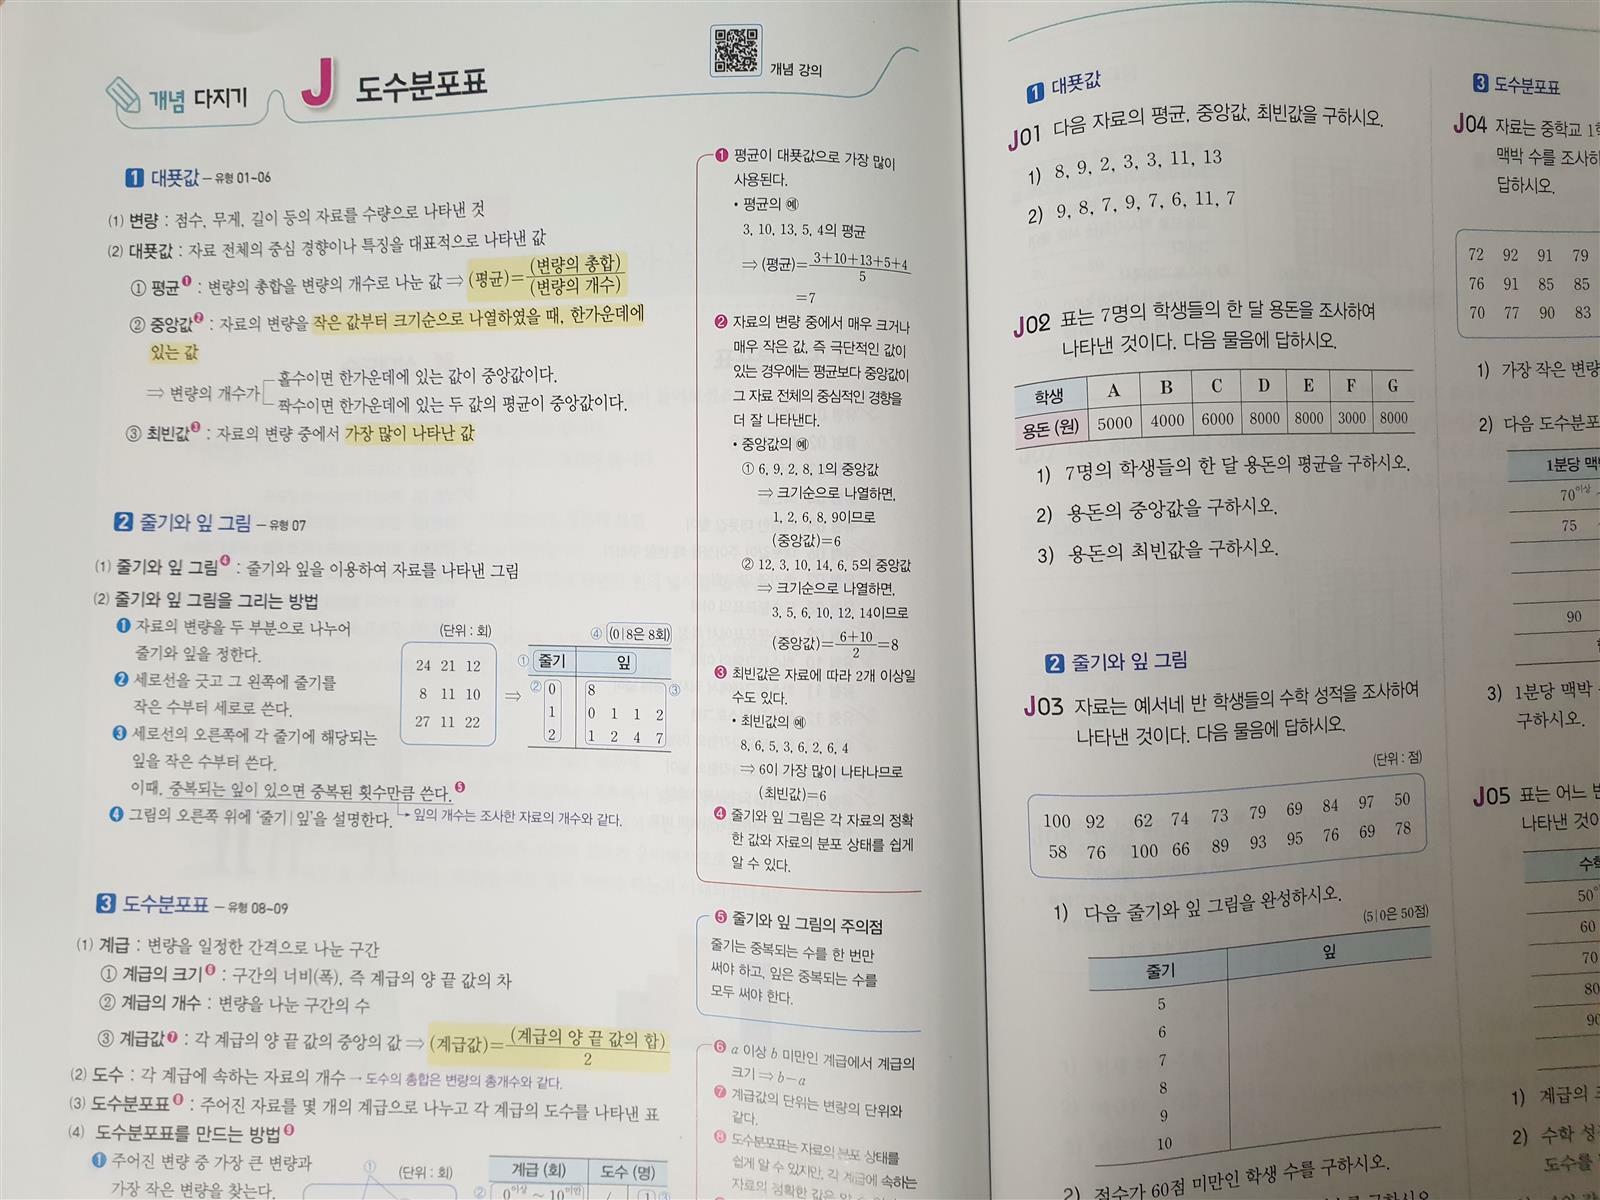 개념 다지기
J 도수분포표
개념 강의
1 대푯값 - 유형 01~06
(1) 변량 : 점수, 무게, 길이 등의 자료를 수량으로 나타낸 것
(2) 대푯값 : 자료 전체의 중심 경향이나 특징을 대표적으로 나타낸 값
① 평균❶ : 변량의 총합을 변량의 개수로 나눈 값 ⇒ (평균)=(변량의 총합)/(변량의 개수)
② 중앙값❷ : 자료의 변량을 작은 값부터 크기순으로 나열하였을 때, 한가운데에
있는 값
⇒ 변량의 개수가
홀수이면 한가운데에 있는 값이 중앙값이다.
짝수이면 한가운데에 있는 두 값의 평균이 중앙값이다.
③ 최빈값❸ : 자료의 변량 중에서 가장 많이 나타난 값
2 줄기와 잎 그림 - 유형 07
(1) 줄기와 잎 그림❹ : 줄기와 잎을 이용하여 자료를 나타낸 그림
(2) 줄기와 잎 그림을 그리는 방법
❶ 자료의 변량을 두 부분으로 나누어
줄기와 잎을 정한다.
❷ 세로선을 긋고 그 왼쪽에 줄기를
작은 수부터 세로로 쓴다.
❸ 세로선의 오른쪽에 각 줄기에 해당되는
잎을 작은 수부터 쓴다.
이때, 중복되는 잎이 있으면 중복된 횟수만큼 쓴다.❺
❹ 그림의 오른쪽 위에 '줄기|잎'을 설명한다.
잎의 개수는 조사한 자료의 개수와 같다.
(단위 : 회)
24 21 12
8 11 10
27 11 22
⇒
④ (0|8은 8회)
① 줄기 잎
② 0 8 ③
1 0 1 1 2
2 1 2 4 7
3 도수분포표 - 유형 08~09
(1) 계급 : 변량을 일정한 간격으로 나눈 구간
① 계급의 크기❻ : 구간의 너비(폭), 즉 계급의 양 끝 값의 차
② 계급의 개수 : 변량을 나눈 구간의 수
③ 계급값❼ : 각 계급의 양 끝 값의 중앙의 값 ⇒ (계급값)=(계급의 양 끝 값의 합)/2
(2) 도수 : 각 계급에 속하는 자료의 개수 → 도수의 총합은 변량의 총개수와 같다.
(3) 도수분포표❽ : 주어진 자료를 몇 개의 계급으로 나누고 각 계급의 도수를 나타낸 표
(4) 도수분포표를 만드는 방법❾
❶ 주어진 변량 중 가장 큰 변량과
가장 작은 변량을 찾는다.
①
(단위 : 회)
계급 (회) 도수 (명)
② 0이상 ~ 10미만 / 1 ③
❶ 평균이 대푯값으로 가장 많이
사용된다.
• 평균의 예
3, 10, 13, 5, 4의 평균
⇒ (평균)=3+10+13+5+4/5
=7
❷ 자료의 변량 중에서 매우 크거나
매우 작은 값, 즉 극단적인 값이
있는 경우에는 평균보다 중앙값이
그 자료 전체의 중심적인 경향을
더 잘 나타낸다.
• 중앙값의 예
① 6, 9, 2, 8, 1의 중앙값
⇒ 크기순으로 나열하면,
1, 2, 6, 8, 9이므로
(중앙값)=6
② 12, 3, 10, 14, 6, 5의 중앙값
⇒ 크기순으로 나열하면,
3, 5, 6, 10, 12, 14이므로
(중앙값)=6+10/2=8
❸ 최빈값은 자료에 따라 2개 이상일
수도 있다.
• 최빈값의 예
8, 6, 5, 3, 6, 2, 6, 4
⇒ 6이 가장 많이 나타나므로
(최빈값)=6
❹ 줄기와 잎 그림은 각 자료의 정확
한 값과 자료의 분포 상태를 쉽게
알 수 있다.
❺ 줄기와 잎 그림의 주의점
줄기는 중복되는 수를 한 번만
써야 하고, 잎은 중복되는 수를
모두 써야 한다.
❻ a 이상 b 미만인 계급에서 계급의
크기 ⇒ b-a
❼ 계급값의 단위는 변량의 단위와
같다.
❽ 도수분포표는 자료의 분포 상태를
쉽게 알 수 있지만, 각 계급에 속하는
자료의 정확한 값은 알 수
1 대푯값
J01 다음 자료의 평균, 중앙값, 최빈값을 구하시오.
1) 8, 9, 2, 3, 3, 11, 13
2) 9, 8, 7, 9, 7, 6, 11, 7
J02 표는 7명의 학생들의 한 달 용돈을 조사하여
나타낸 것이다. 다음 물음에 답하시오.
학생 A B C D E F G
용돈 (원) 5000 4000 6000 8000 8000 3000 8000
1) 7명의 학생들의 한 달 용돈의 평균을 구하시오.
2) 용돈의 중앙값을 구하시오.
3) 용돈의 최빈값을 구하시오.
2 줄기와 잎 그림
J03 자료는 예서네 반 학생들의 수학 성적을 조사하여
나타낸 것이다. 다음 물음에 답하시오.
(단위 : 점)
100 92 62 74 73 79 69 84 97 50
58 76 100 66 89 93 95 76 69 78
1) 다음 줄기와 잎 그림을 완성하시오.
(5|0은 50점)
줄기 잎
5
6
7
8
9
10
2) 점수가 60점 미만인 학생 수를 구하시오.
3 도수분포표
J04 자료는 중학교 1학
맥박 수를 조사하
답하시오.
72 92 91 79
76 91 85 85
70 77 90 83
1) 가장 작은 변량
2) 다음 도수분포
1분당 맥박
70이상 ~
75 ~
90
3) 1분당 맥박
구하시오.
J05 표는 어느 반
나타낸 것이
수학
50이
60
70
80
90
1) 계급의 크
2) 수학 성
도수를